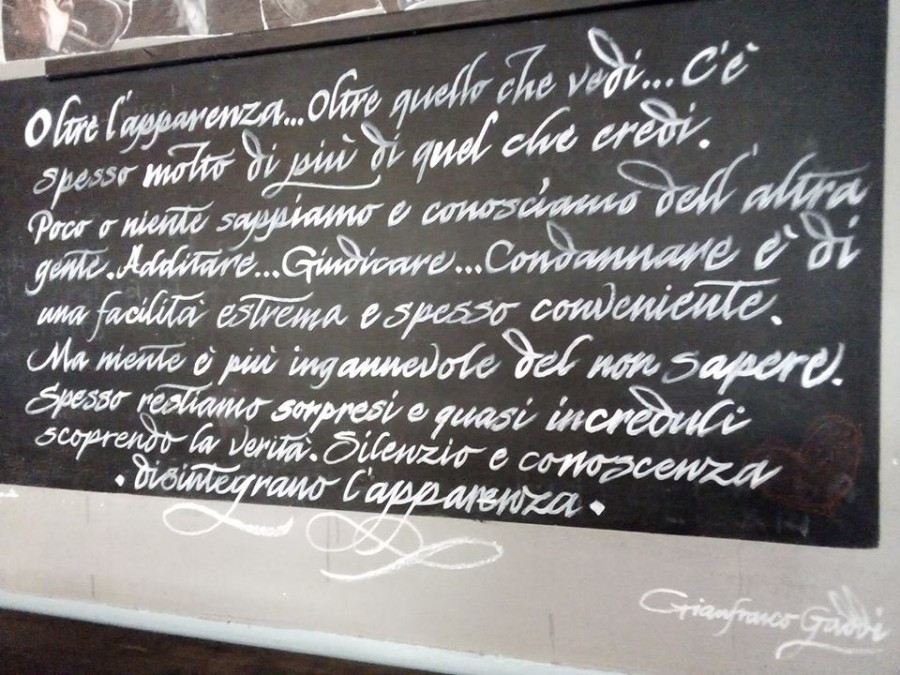 Oltre l'apparenza...Oltre quello che vedi...C'è
spesso molto di più di quel che credi.
Poco o niente sappiamo e conosciamo dell'altra
gente. Additare...Giudicare...Condannare è di
una facilità estrema e spesso conveniente.
Ma niente è più ingannevole del non sapere.
Spesso restiamo sorpresi e quasi increduli
scoprendo la verità. Silenzio e conoscenza
. disintegrano l'apparenza.
Gianfranco Gaddi